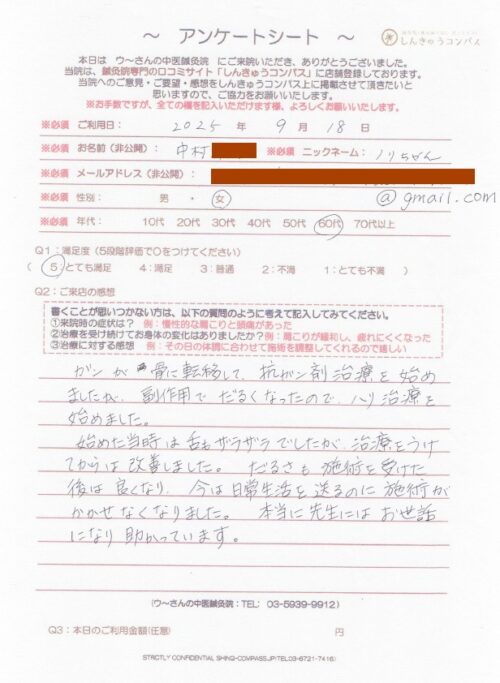 ～ アンケートシート ～
しんきゅうコンパス
本日は ウ～さんの中医鍼灸院 にご来院いただき、ありがとうございました。
当院は、鍼灸院専門の口コミサイト「しんきゅうコンパス」に店舗登録しております。
当院へのご意見・ご要望・感想をしんきゅうコンパス上に掲載させて頂きたいと
思いますので、ご協力をお願いいたします。
※お手数ですが、全ての欄を記入いただけます様、よろしくお願いいたします。
※必須 ご利用日： 2025 年 9 月 18 日
※必須 お名前（非公開）： 中村 ※必須 ニックネーム： ノリちゃん
※必須 メールアドレス（非公開）：
@gmail.com
※必須 性別： 男 ・ 女
※必須 年代： 10代 20代 30代 40代 50代 60代 70代以上
Q1：満足度（5段階評価で○をつけてください）
（ 5：とても満足 4：満足 3：普通 2：不満 1：とても不満 ）
Q2：ご来店の感想
書くことが思いつかない方は、以下の質問のように考えて記入してみてください。
①来院時の症状は？ 例：慢性的な肩こりと頭痛があった
②治療を受け続けてお身体の変化はありましたか？ 例：肩こりが緩和し、疲れにくくなった
③治療に対する感想 例：その日の体調に合わせて施術を調整してくれるので嬉しい
ガンが骨に転移して、抗ガン剤治療を始め
ましたが、副作用でだるくなったので、ハリ治療を
始めました。
始めた当時は舌もザラザラでしたが、治療をうけ
てからは改善しました。だるさも施術を受けた
後は良くなり、今は日常生活を送るのに施術が
かかせなくなりました。本当に先生にはお世話
になり助かっています。
（ウ～さんの中医鍼灸院：TEL： 03-5939-9912）
Q3：本日のご利用金額（任意） 円
STRICTLY CONFIDENTIAL SHINQ-COMPASS.JP(TEL03-6721-7416)